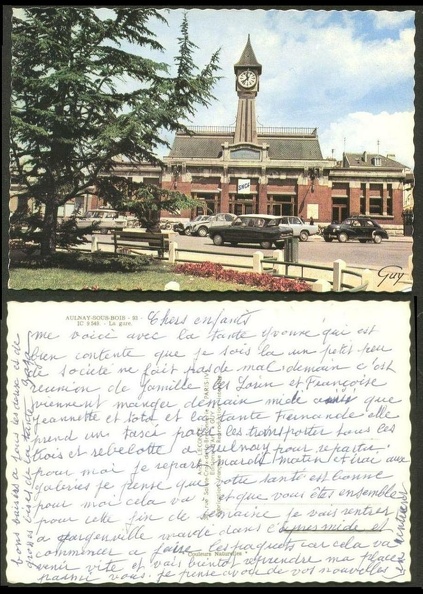 SNCF
Guy
AULNAY-SOUS-BOIS - 93
IC 9343 - La gare
Chers enfants
me voici avec la tante Yvonne qui est
bien contente que je sois la un petit peu
de societe ne fait pas de mal demain c'est
reunion de famille les Loren et Françoise
viennent manger demain midi ainsi que
Jeannette et toto et la tante Fernande elle
prend un taxi pour les transporter tous les
trois et rebelotte a aulnay pour repartir
pour moi je repart mardi matin et irai aux
galeries je pense que votre santé est bonne
pour moi cela va et que vous êtes ensemble
pour cette fin de semaine je vais rentrer
a gargenville mardi dans l'apres midi et
commencer a faire les paquets car cela va
venir vite et vais bientôt reprendre ma place
parmi vous je pense avoir de vos nouvelles
en rentrant
bons baisers a tous les deux et de
la tante
Couleurs Naturelles